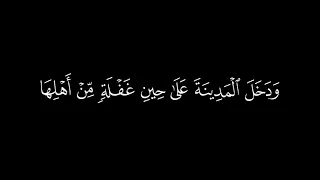 وَدَخَلَ ٱلْمَدِينَةَ عَلَىٰ حِينِ غَفْلَةٍۢ مِّنْ أَهْلِهَا